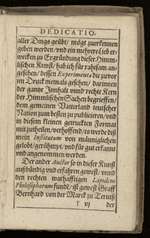 DEDICATIO.
aller Dings geübt/ möge zuerkennen
geben worden/ und ein mehrers Lieb er-
wecken zu Ergründung dieser Himm-
lischen Kunst/ hab ich für rahtsam an-
gesehen/ dessen Experiment die zuvor
im Druck niemals gesehen/ darinnen
der gantze Innhalt und rechte Kern
der Himmlischen Sachen begriffen/
dem gemeinen Vaterland teutscher
Nation zum besten zu publiciren, und
in diesem kleinen getruckten Format
mit zutheilen/ verhoffend/ es werde diß
mein Institutum von männiglichen
gelobt/ gerühmt/ und für gut erkannt
und angenommen werden.
Der ander Author so in dieser Kunst
auß bündig und erfahren gewest/ und
den rechten warhafftigen Lapidem
Philosophorum fundt/ ist gewest Graff
Bernhard von der Marck zu Tervis
der